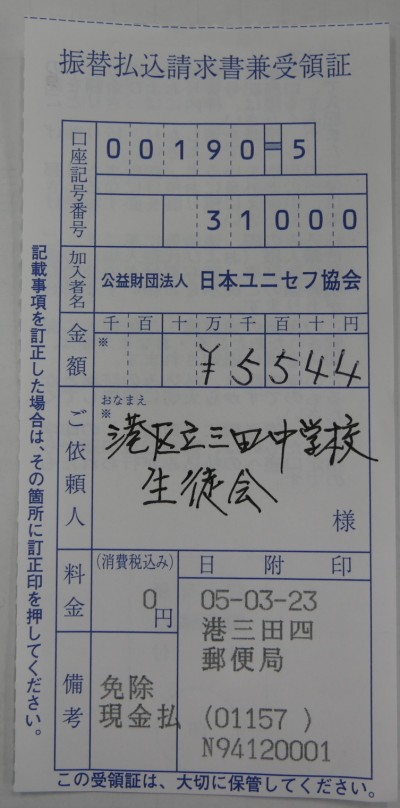 振替払込請求書兼受領証
口座記号番号
00190-5
31000
加入者名
公益財団法人 日本ユニセフ協会
金額
千百十万千百十円
※
¥5544
ご依頼人
おなまえ
※
港区立三田中学校
生徒会
様
料金
(消費税込み)
0円
日附印
05-03-23
港三田四
郵便局
(01157 )
N94120001
備考
免除
現金払
記載事項を訂正した場合は、その箇所に訂正印を押してください。
この受領証は、大切に保管してください。